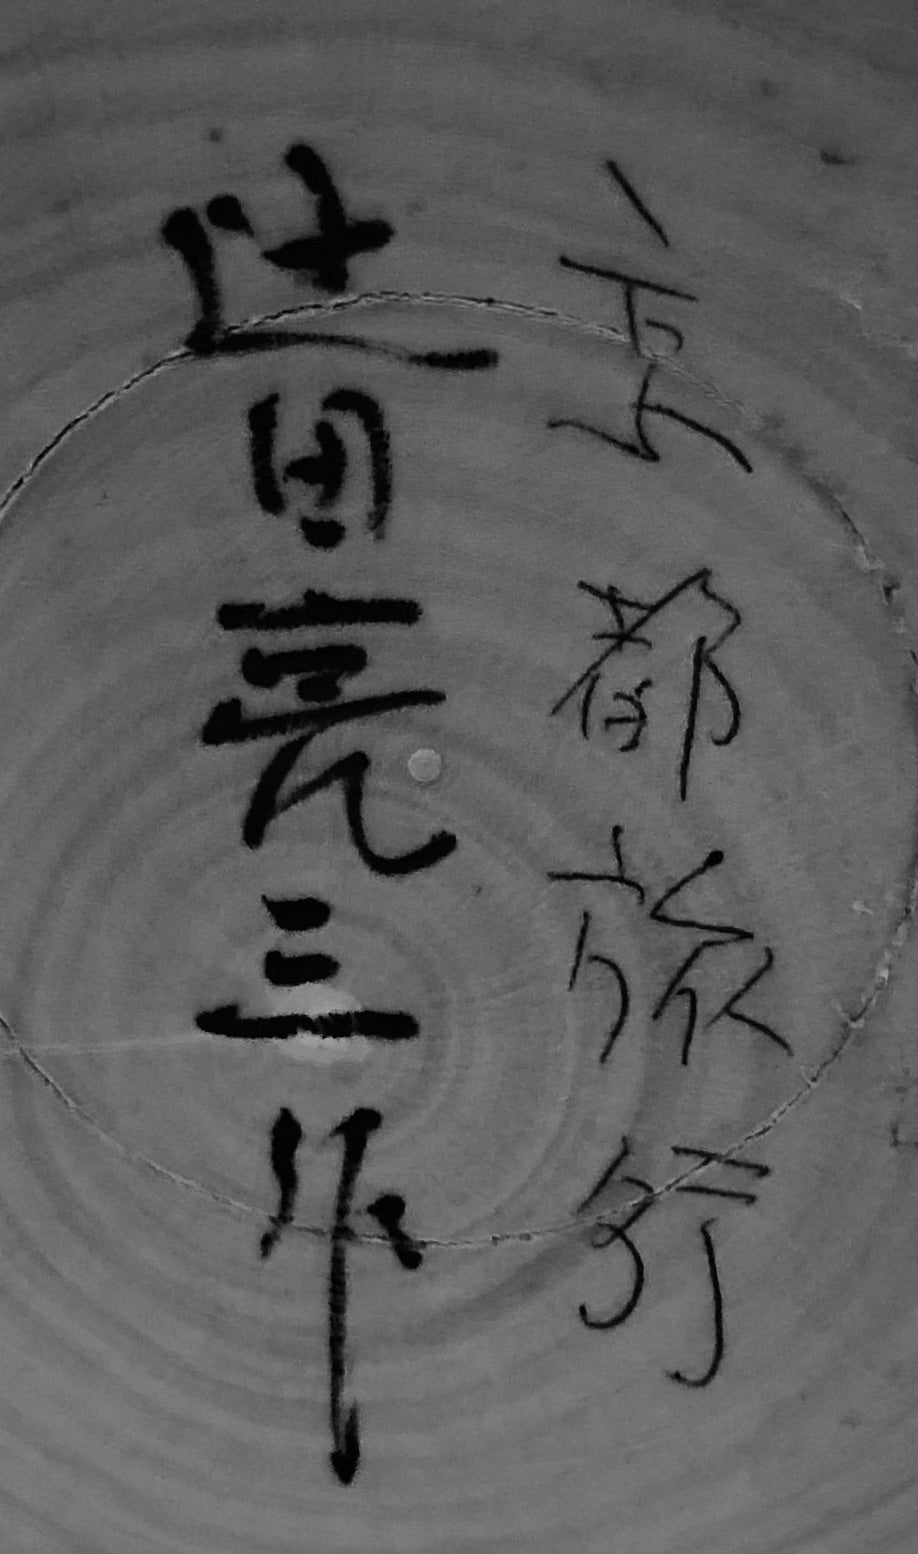 京都旅行
辻田亮三作